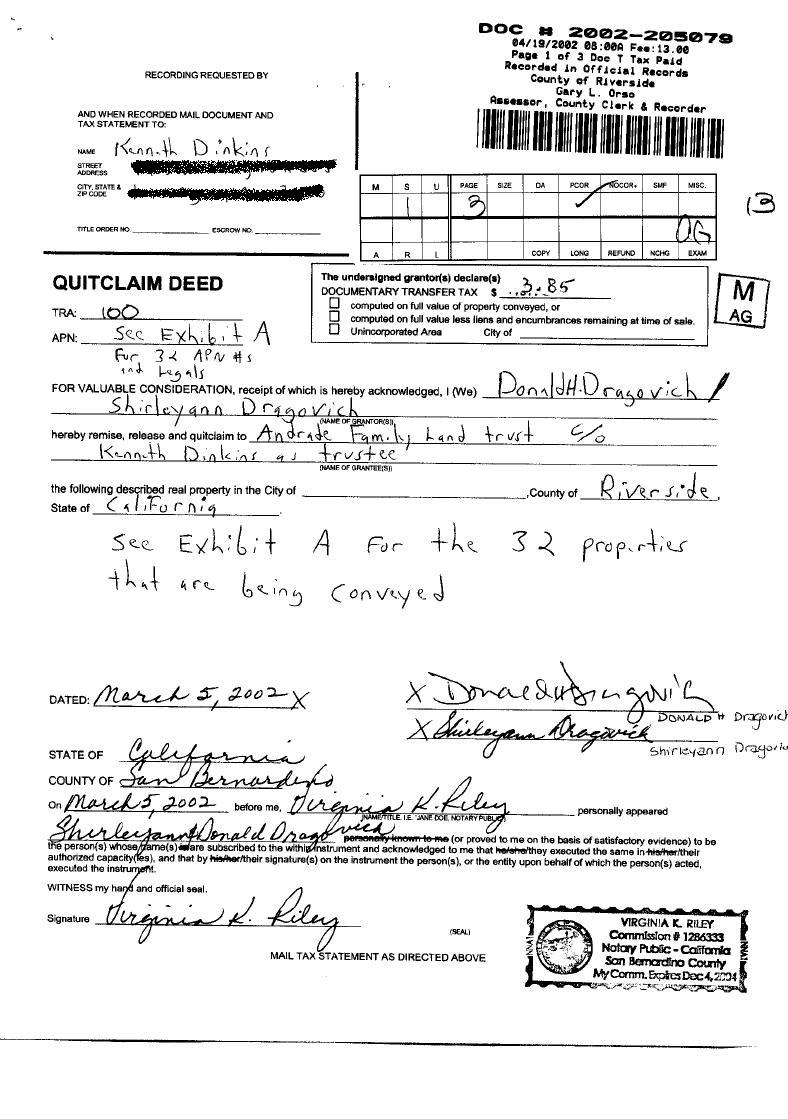 DOC # 2002-205079
04/19/2002 08:00A Fee:13.00
Page 1 of 3 Doc T Tax Paid
Recorded in Official Records
County of Riverside
Gary L. Orso
Assessor, County Clerk & Recorder
RECORDING REQUESTED BY
AND WHEN RECORDED MAIL DOCUMENT AND
TAX STATEMENT TO:
NAME Kenneth Dinkins
STREET
ADDRESS
CITY, STATE &
ZIP CODE
TITLE ORDER NO. ESCROW NO.
M S U PAGE SIZE DA PCOR NOCOR SMF MISC.
1 3 ✓
A R L COPY LONG REFUND NCHG EXAM
13
QUITCLAIM DEED
TRA: 100
APN: See Exhibit A
For 32 APN #s
and Legals
The undersigned grantor(s) declare(s)
DOCUMENTARY TRANSFER TAX $ 3.85
computed on full value of property conveyed, or
computed on full value less liens and encumbrances remaining at time of sale.
Unincorporated Area City of
M
AG
FOR VALUABLE CONSIDERATION, receipt of which is hereby acknowledged, I (We) Donald H. Dragovich /
Shirleyann Dragovich
(NAME OF GRANTOR(S))
hereby remise, release and quitclaim to Andrade Family Land trust c/o
Kenneth Dinkins as trustee
(NAME OF GRANTEE(S))
the following described real property in the City of , County of Riverside,
State of California
See Exhibit A For the 32 properties
that are being conveyed
DATED: March 5, 2002 X
X Donald H Dragovich
DONALD H Dragovich
X Shirleyann Dragovich
Shirleyann Dragovic
STATE OF California
COUNTY OF San Bernardino
On March 5, 2002 before me, Virginia K. Riley personally appeared
(NAME/TITLE, I.E. "JANE DOE, NOTARY PUBLIC")
Shirleyann & Donald Dragovich
personally known to me (or proved to me on the basis of satisfactory evidence) to be
the person(s) whose name(s) is/are subscribed to the within instrument and acknowledged to me that he/she/they executed the same in his/her/their
authorized capacity(ies), and that by his/her/their signature(s) on the instrument the person(s), or the entity upon behalf of which the person(s) acted,
executed the instrument.
WITNESS my hand and official seal.
Signature Virginia K. Riley
(SEAL)
MAIL TAX STATEMENT AS DIRECTED ABOVE
VIRGINIA K. RILEY
Commission # 1286333
Notary Public - California
San Bernardino County
My Comm. Expires Dec 4, 2004